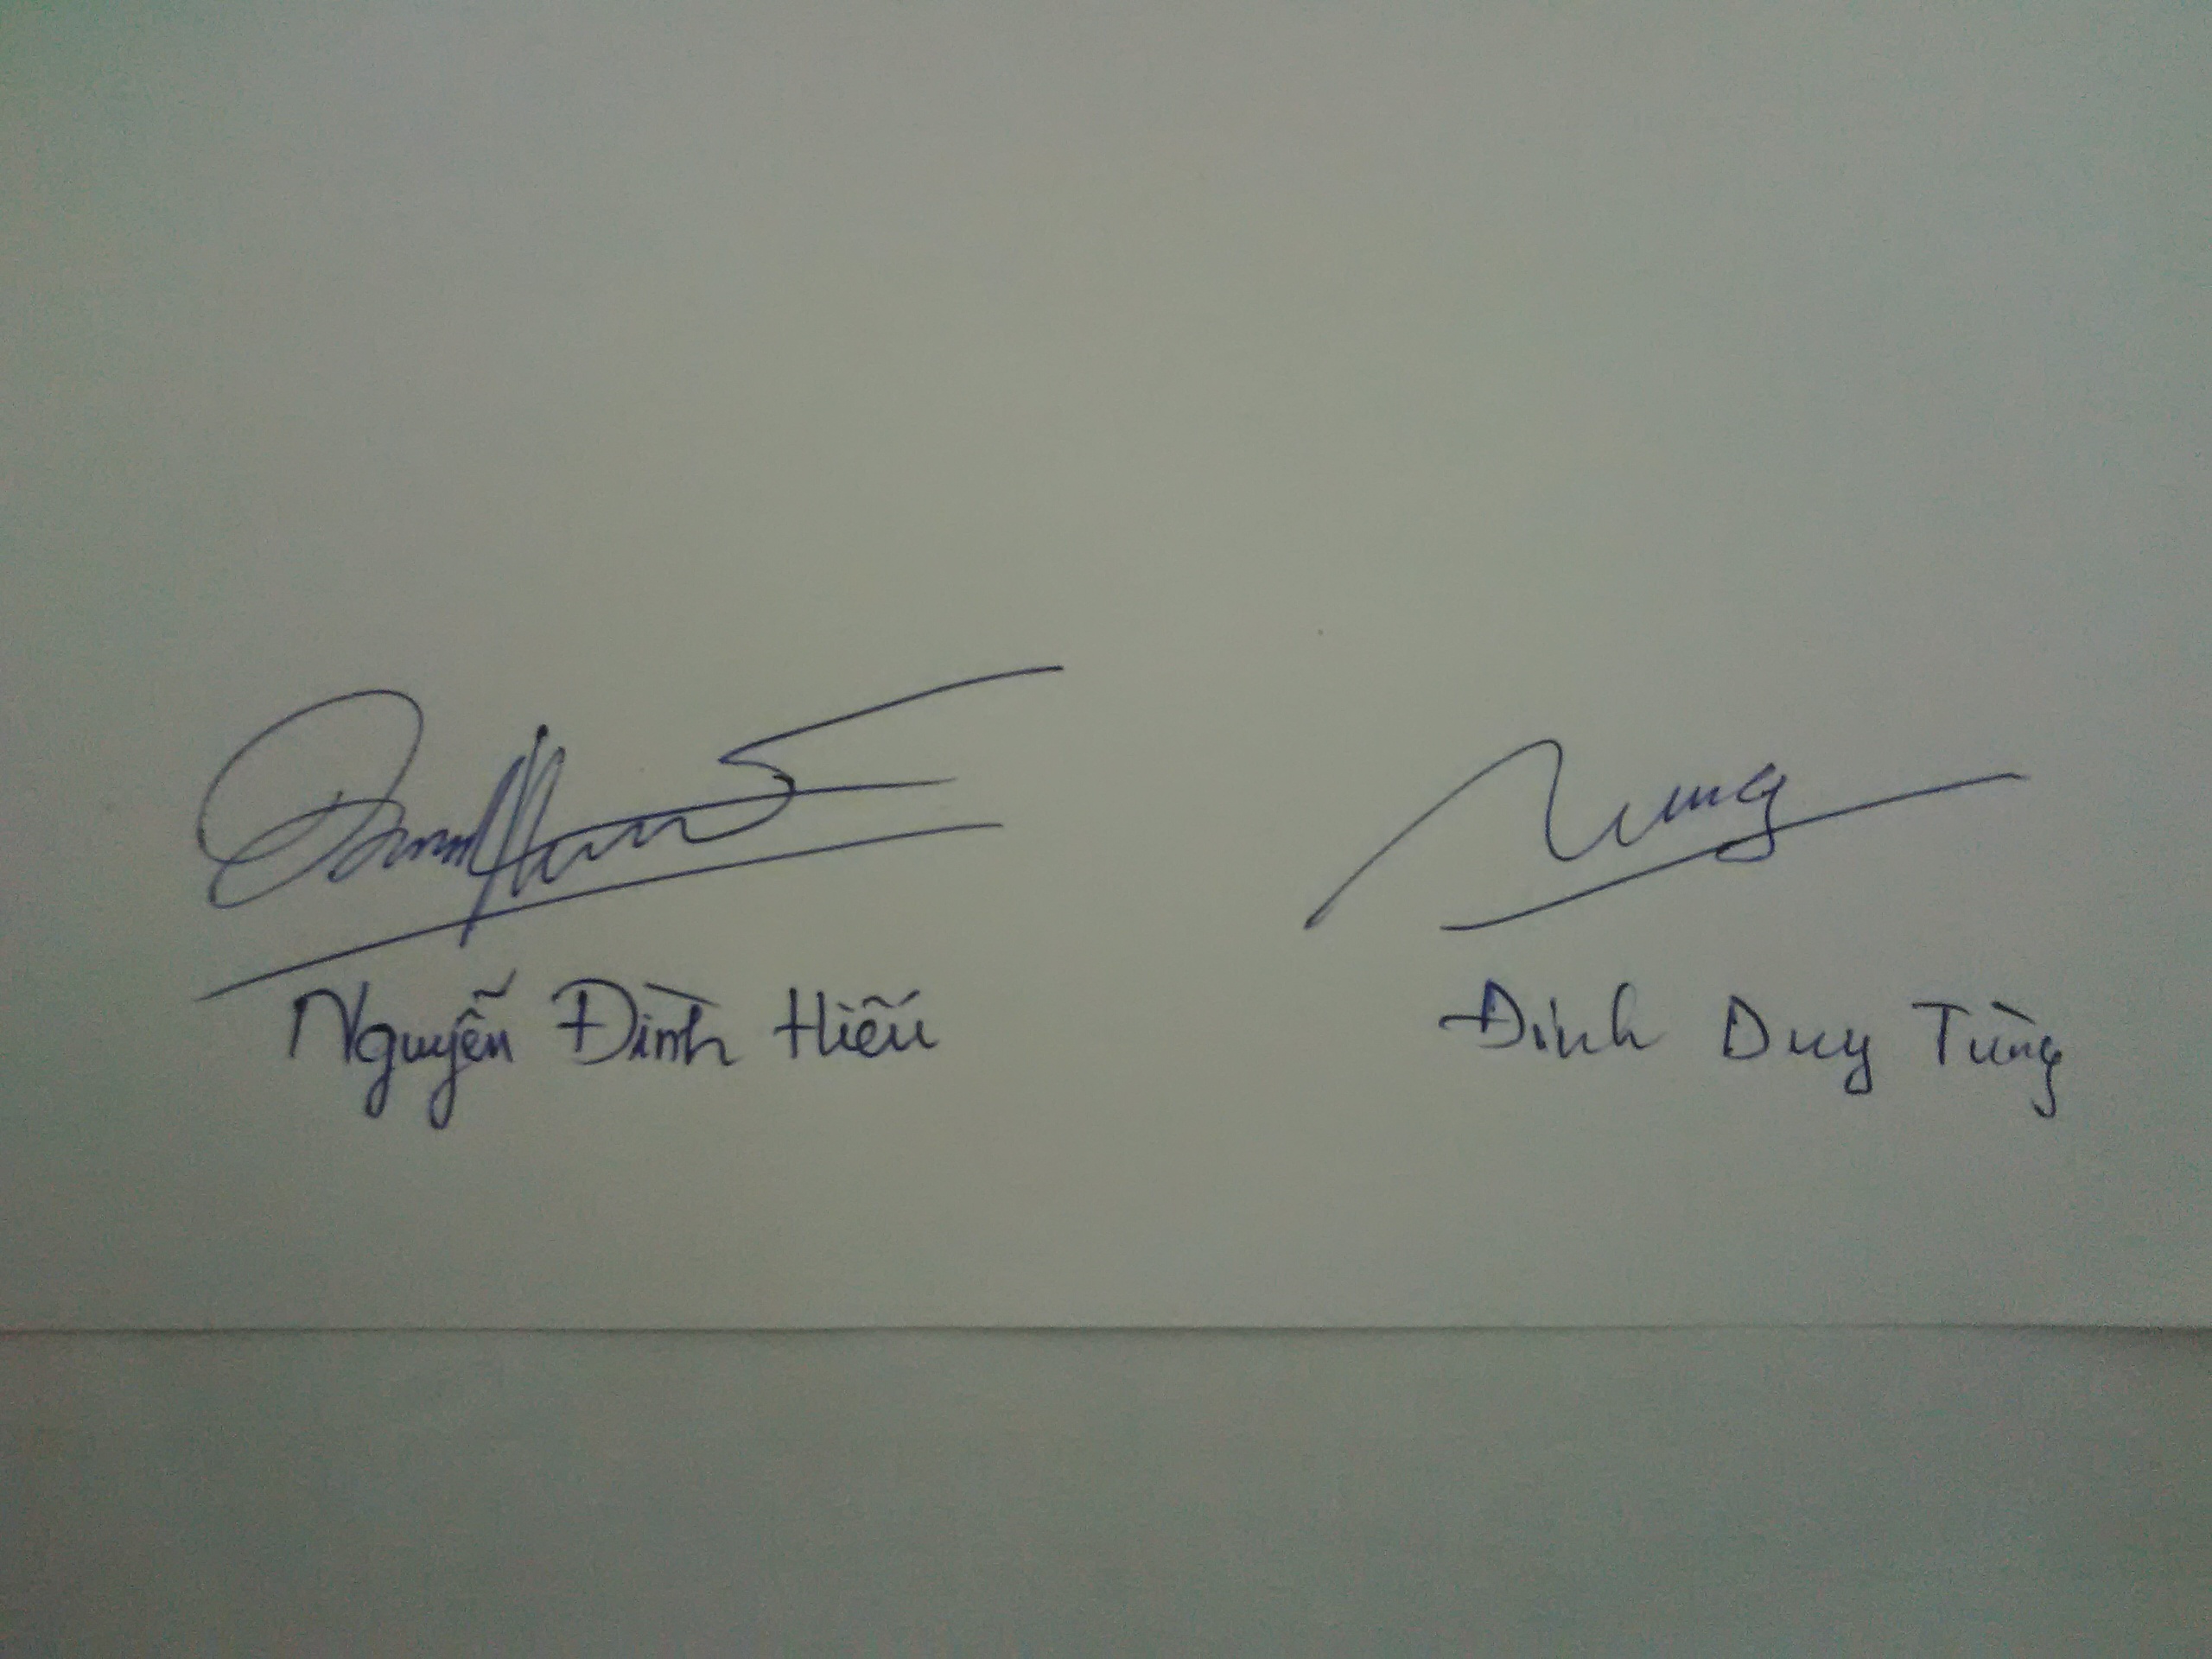 Nguyễn Đình Hiếu
Đinh Duy Tùng